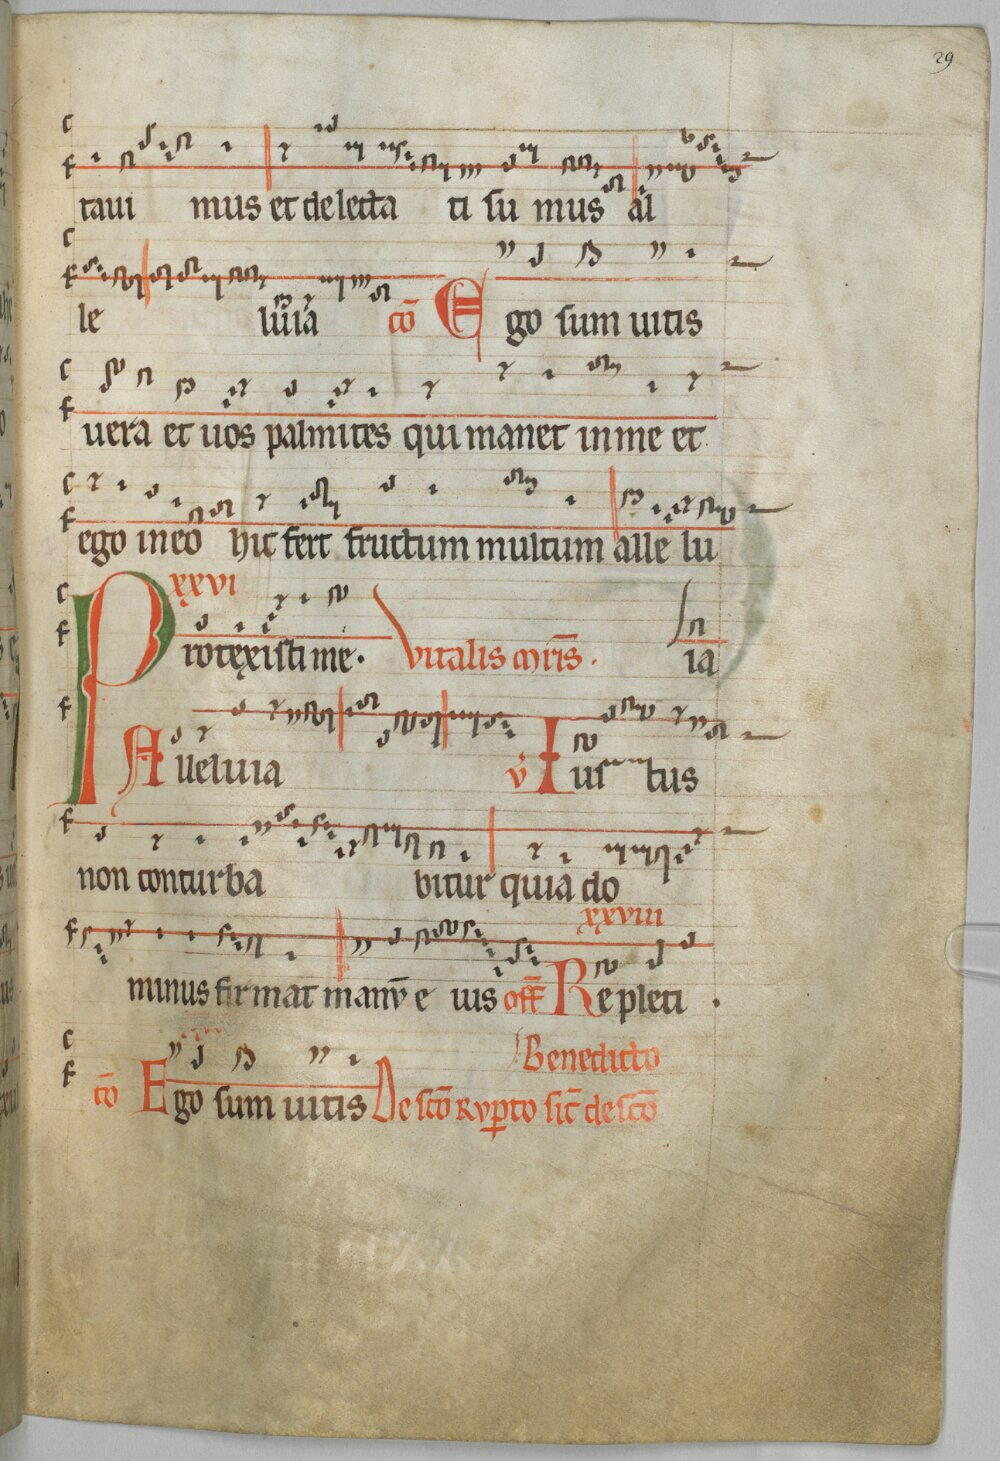 29
taui mus et delecta ti su mus al
le luia cō Ego sum uitis
uera et uos palmites qui manet in me et
ego in eo hic fert fructum multum alle lu
xxvi
Protexisti me. Vitalis mr̄is. ia
Alleluia v̄ Ius tus
non conturba bitur quia do
xxviii
minus firmat manū e ius off̄ Repleti .
Benedicto
cō Ego sum uitis De scō Ruꝑto sic̄ de scō